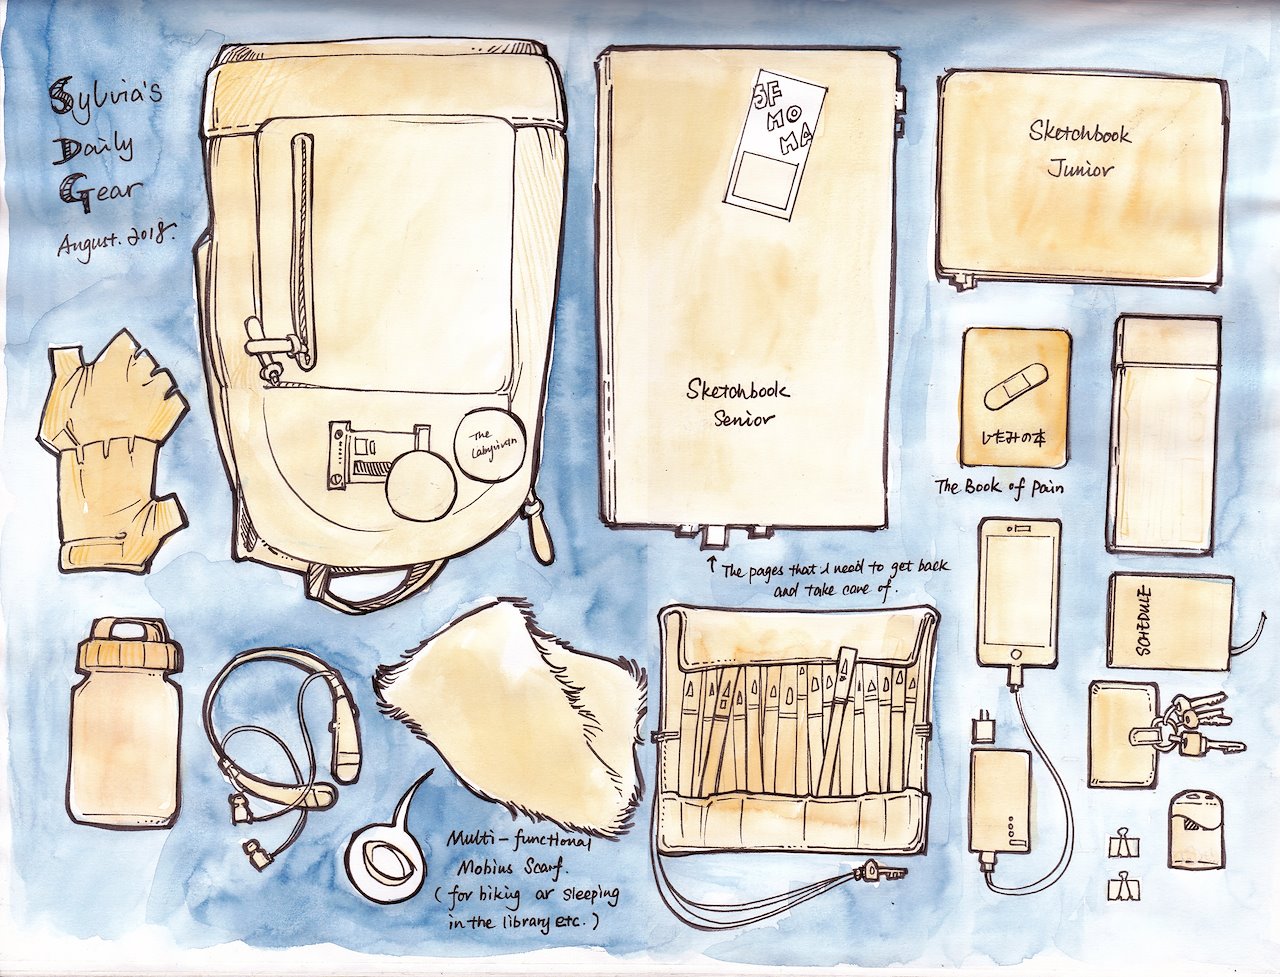 Sylvia's
Daily
Gear
August. 2018.
SF
MO
MA
Sketchbook
Senior
Sketchbook
Junior
The
Labyrinth
いたみの本
The Book of Pain
↑ The pages that I need to get back
and take care of.
SCHEDULE
Multi-functional
Mobius Scarf.
(for biking or sleeping
in the library etc.)